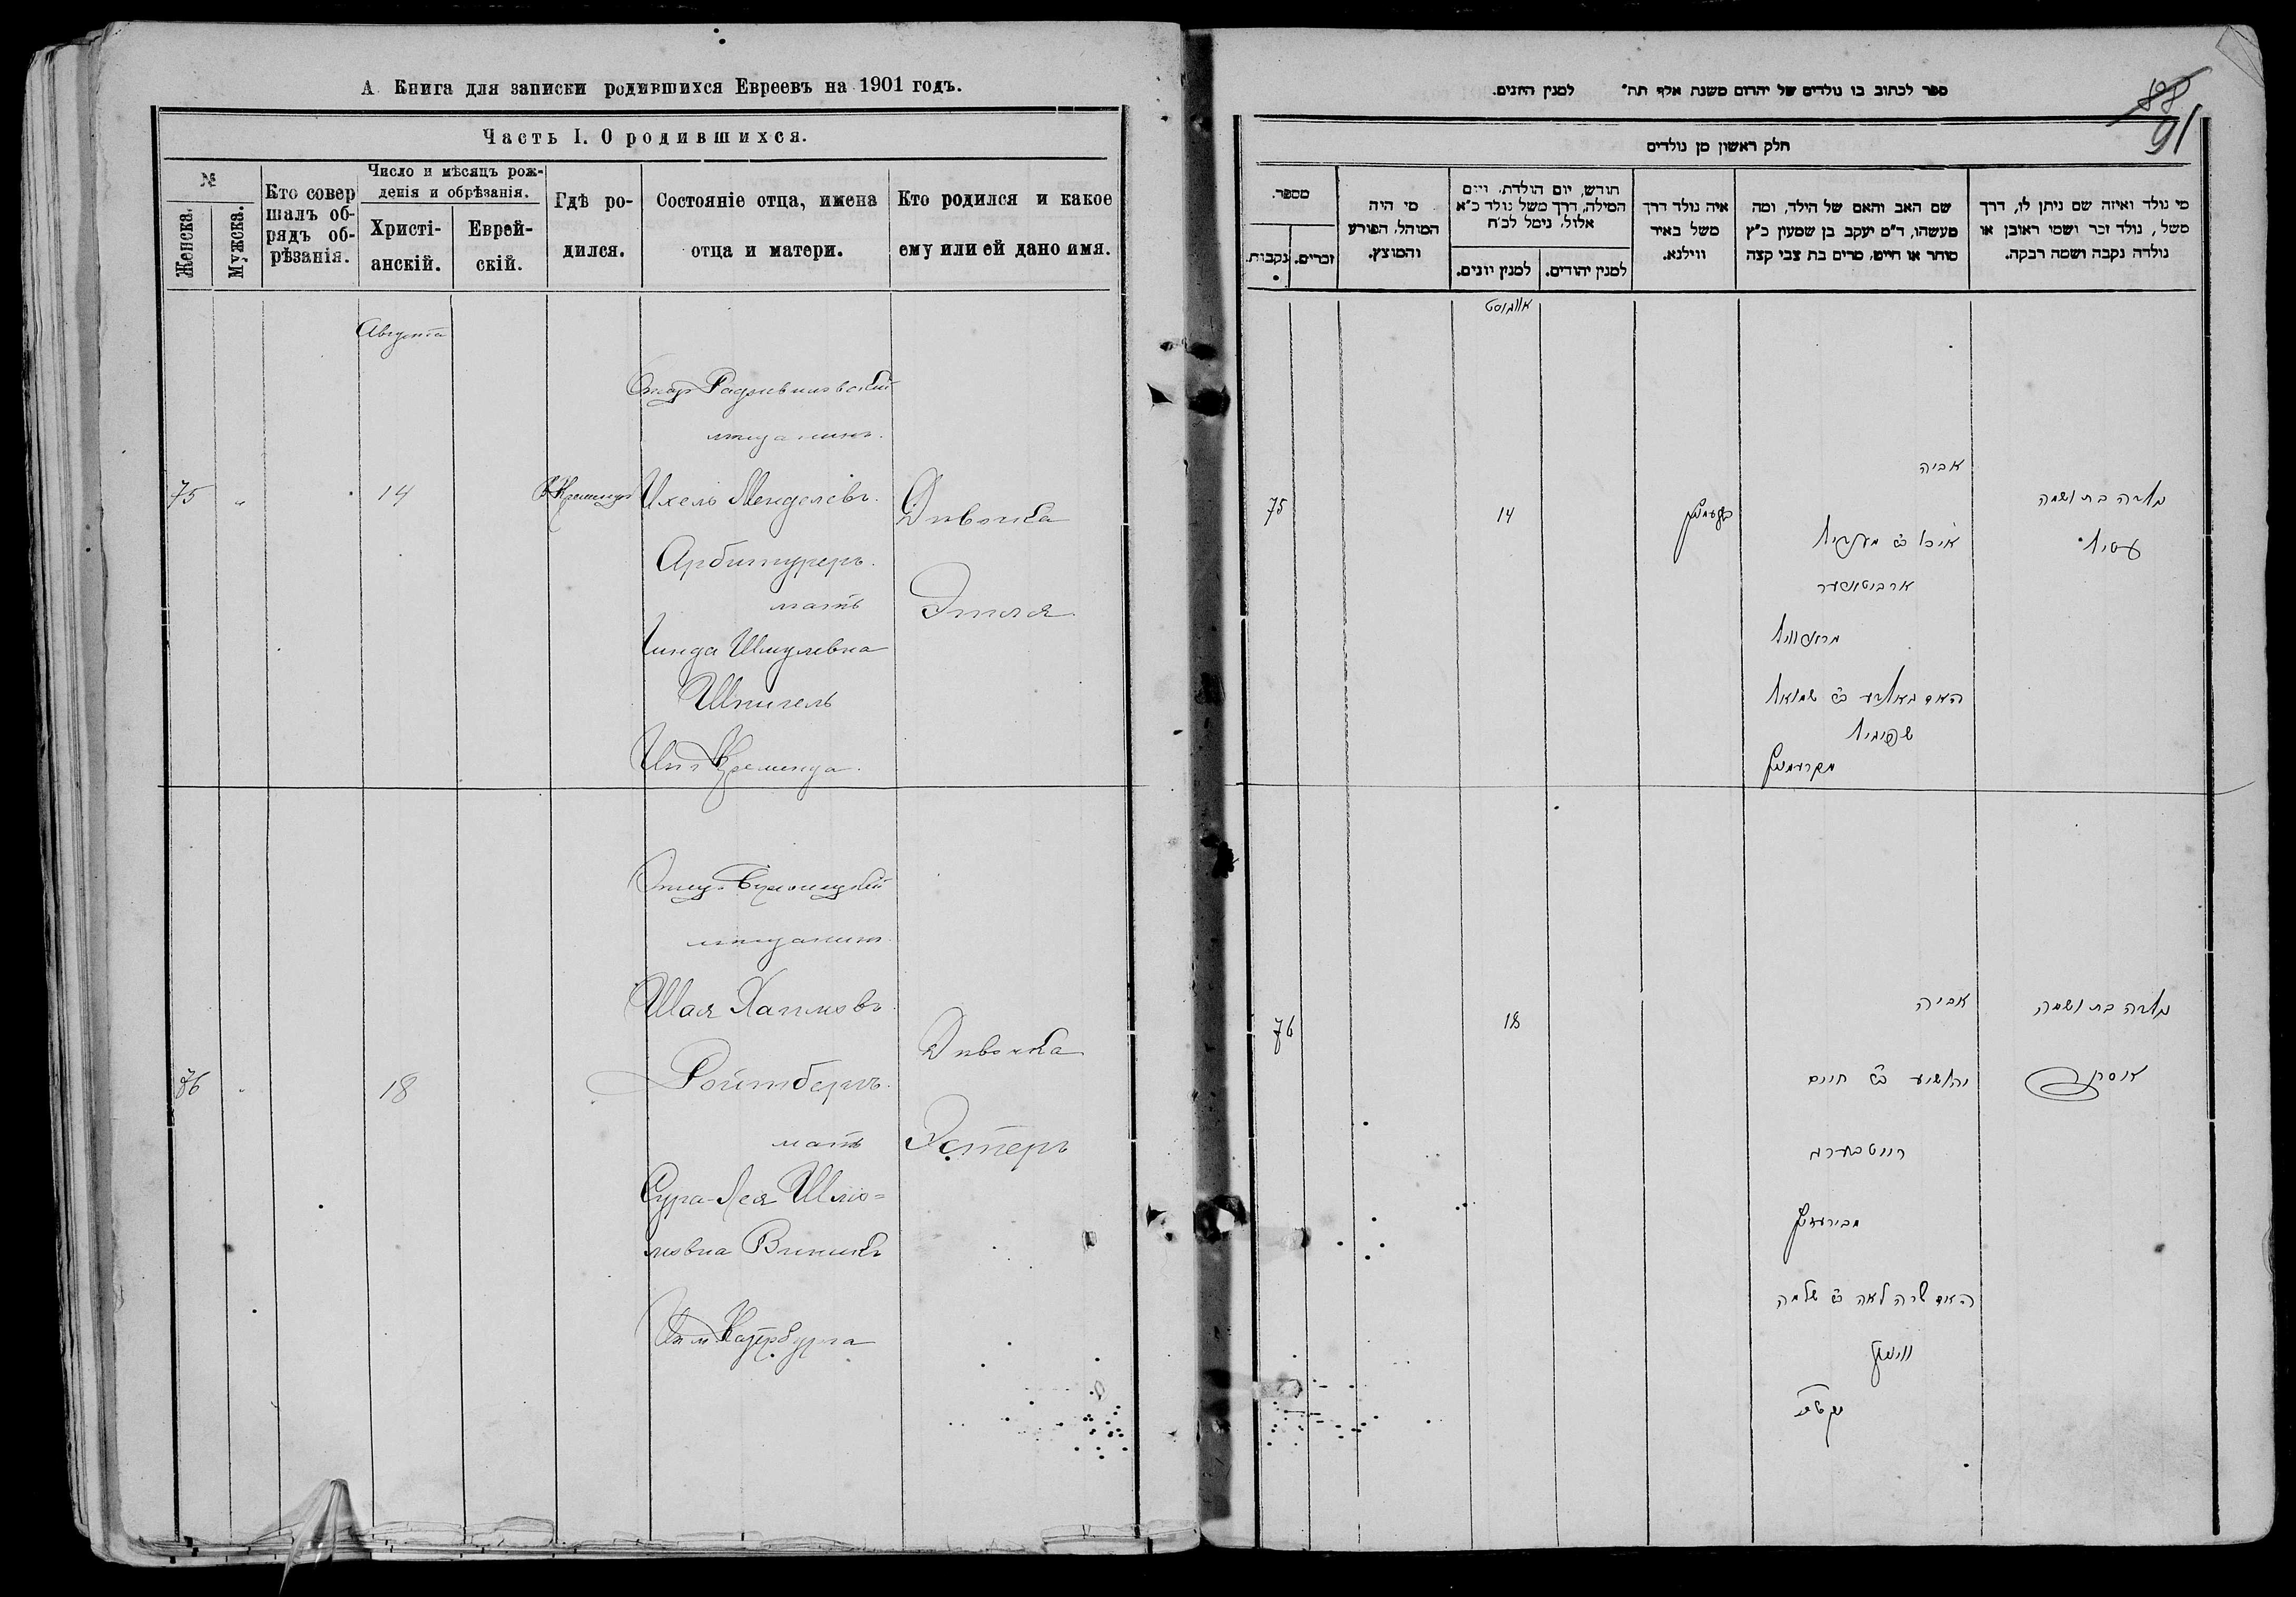 А. Книга для записки родившихся Евреевъ на 1901 годъ.
Часть I. О родившихся.
№
Женска.
Мужска.
Кто совер
шалъ об-
рядъ об-
рѣзанія.
Число и мѣсяцъ рож-
денія и обрѣзанія.
Христі-
анскій.
Еврей-
скій.
Гдѣ ро-
дился.
Состояніе отца, имена
отца и матери.
Кто родился и какое
ему или ей дано имя.
Августа
75
14
Отецъ Радзивиловскій
мѣщанинъ.
Ихель Менделевъ.
Арбитуреръ.
мать
Шмулевна
Шпигель
Изъ Кременца.
Дѣвочка
Этля
76
18
Отецъ
мѣщанинъ
Шая Хаимовъ
Ройтбергъ.
мать
Сура-Лея Шлio-
мовна Виникъ
Изъ м. Катербурга
Дѣвочка
Эстеръ
ספר לכתוב בו נולדים של יהדום משנת אלף תת״ למנין היונים.
88
91
חלק ראשון מן נולדים
מספר.
נקבות.
זכרים.
מי היה
המוהל, הפורע
והמוצץ.
חודש, יום הולדת, ויום
המילה, דרך משל נולד כ״א
אלול, נימל לכ״ח
למנין יונים.
למנין יהודים.
איה נולד דרך
משל באיר
ווילנא.
שם האב והאם של הילד, ומה
מעשהו, ד״מ יעקב בן שמעון כ״ץ
סוחר או חייט, מרים בת צבי קצה
מי נולד ואיזה שם ניתן לו, דרך
משל, נולד זכר ושמו ראובן או
נולדה נקבה ושמה רבקה.
אווגוסט
75
14
אביה
נולדה בת ושמה
שפיגיל
מקרעמניץ
76
18
אביה
יהושיע ב״ר חיים
רויטבערג
האם שרה לאה ב״ר שלמה
וויניק
נולדה בת ושמה
אסתר